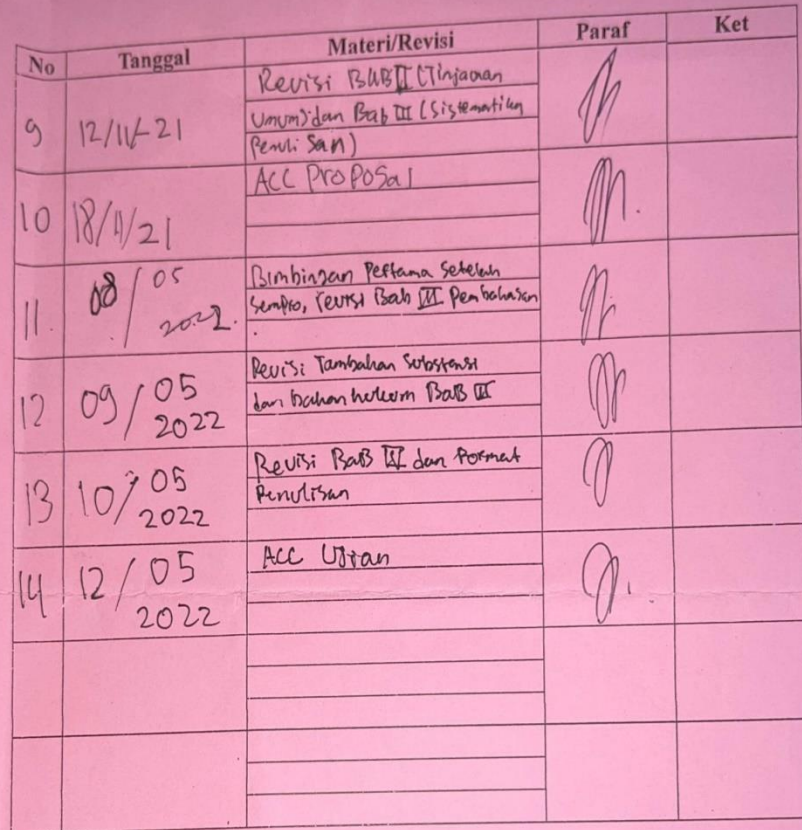 No Tanggal Materi/Revisi Paraf Ket
9 12/11-21 Revisi BAB II (Tinjauan
Umum) dan Bab III (Sistematika
Penulisan)
10 18/11/21 ACC Proposal
11. 08/05 2022. Bimbingan Pertama Setelah
Sempro, revisi Bab III Pembahasan
12 09/05 2022 Revisi Tambahan Substansi
dan bahan hukum BaB III
13 10/05 2022 Revisi BaB dan Format
Penulisan
14 12/05 2022 ACC Ujian